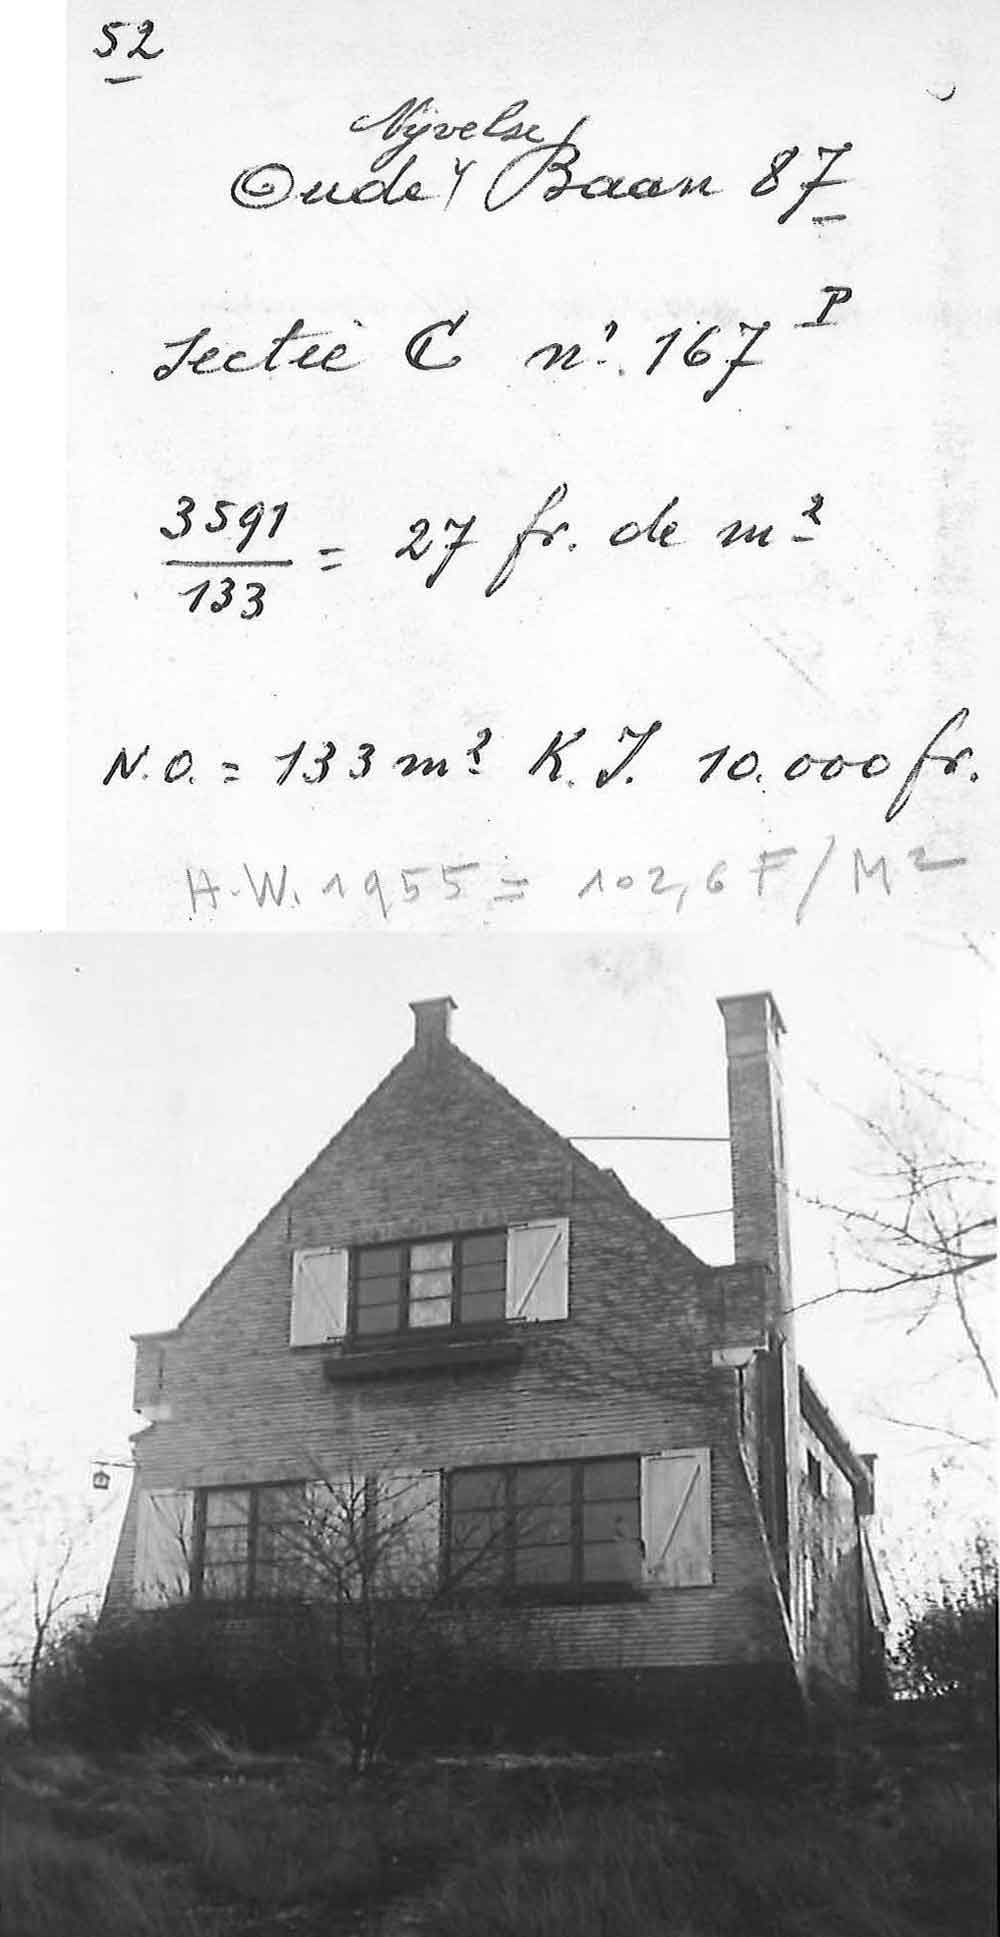 52
Nijvelse
Oude Baan 87
Sectie C nr. 167 P
3591
133
= 27 fr. de m²
N.O. = 133 m² K.I. 10.000 fr.
H.W. 1955 = 102,6 F/M²